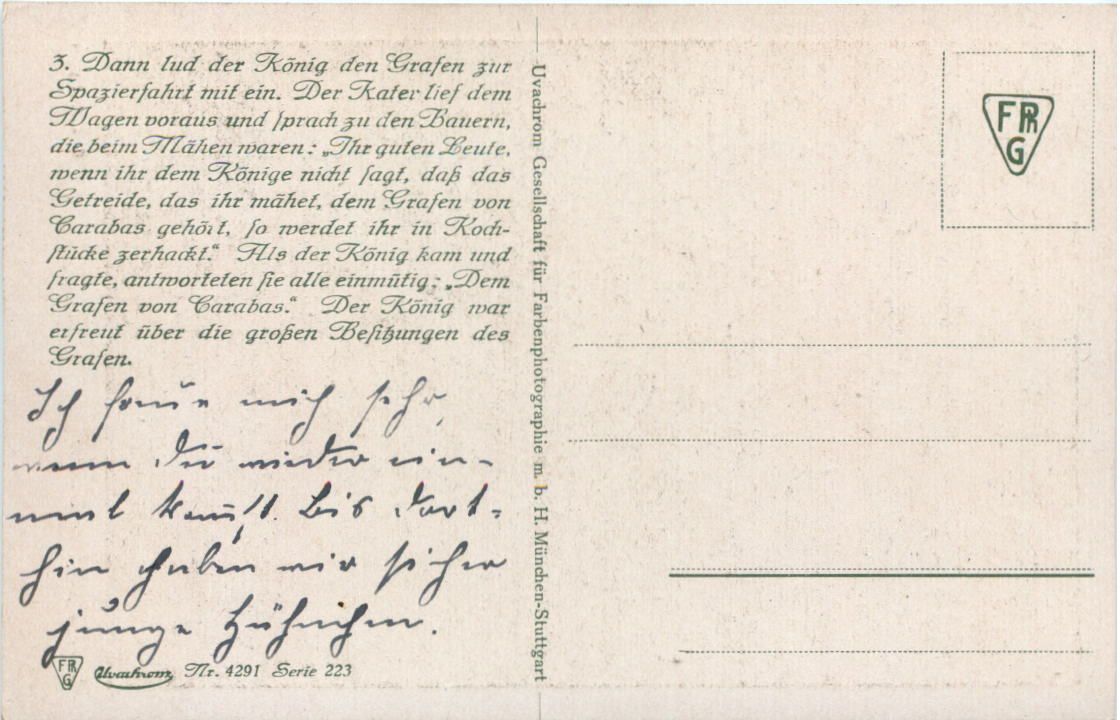 3. Dann lud der König den Grafen zur
Spazierfahrt mit ein. Der Kater lief dem
Wagen voraus und sprach zu den Bauern,
die beim Mähen waren: „Ihr guten Leute,
wenn ihr dem Könige nicht sagt, daß das
Getreide, das ihr mähet, dem Grafen von
Carabas gehört, so werdet ihr in Koch-
stücke zerhackt.“ Als der König kam und
fragte, antworteten sie alle einmütig: „Dem
Grafen von Carabas.“ Der König war
erfreut über die großen Besitzungen des
Grafen.
Ich freue mich sehr,
wenn Du wieder ein-
mal kommst. Bis dort-
hin haben wir sicher
junge Hühnchen.
FPRG Uvachrom Nr. 4291 Serie 223
Uvachrom Gesellschaft für Farbenphotographie m. b. H. München-Stuttgart
FPR
G